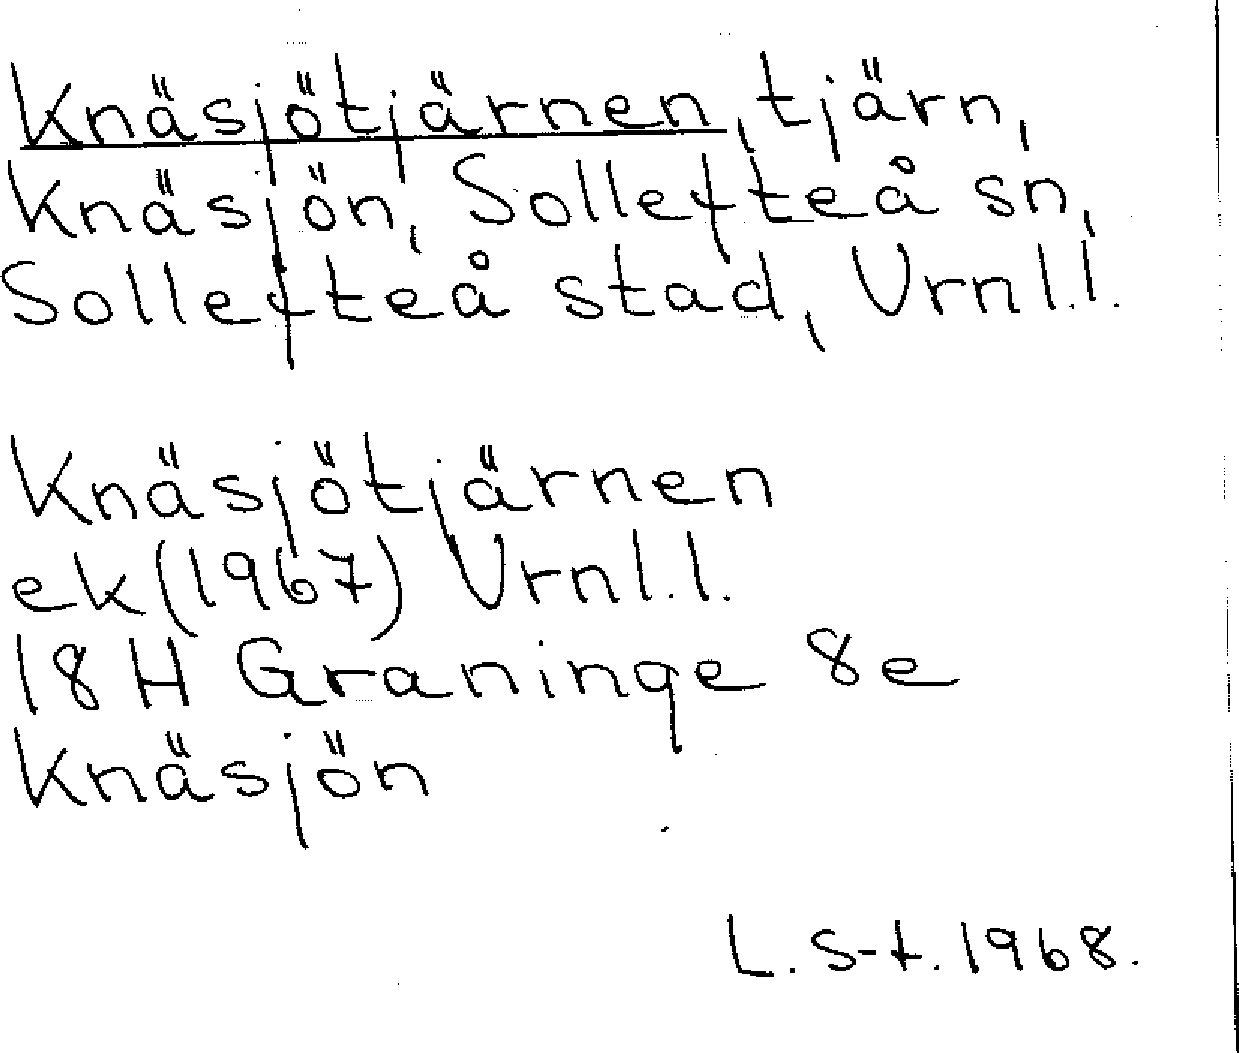 Knäsjötjärnen, tjärn,
Knäsjön, Sollefteå sn,
Sollefteå stad, Vrnl.l.
Knäsjötjärnen
ek (1967) Vrnl.l.
18 H Graninge 8e
Knäsjön
L. S-t. 1968.